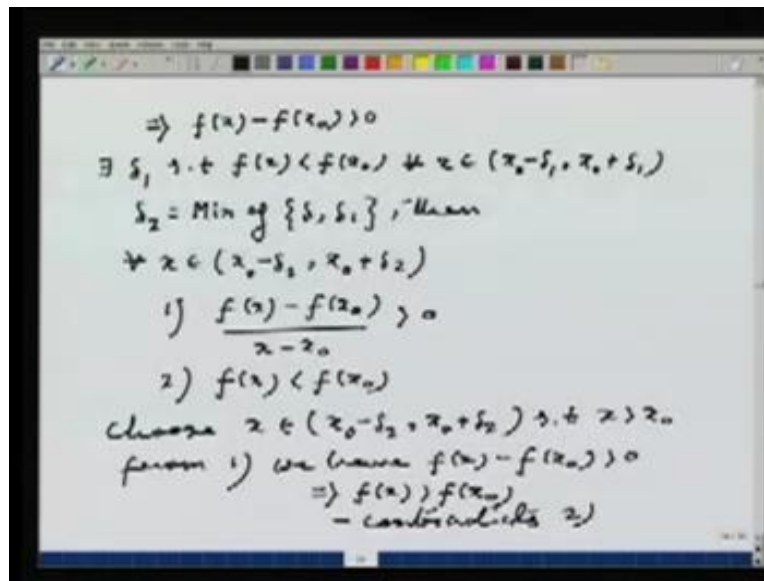 ⇒ f(x) - f(x₀) > 0
∃ δ₁ s.t f(x) < f(x₀) ∀ x ∈ (x₀-δ₁, x₀+δ₁)
δ₂ = Min of {δ, δ₁}, then
∀ x ∈ (x₀-δ₂, x₀+δ₂)
1) f(x) - f(x₀) / x - x₀ > 0
2) f(x) < f(x₀)
choose x ∈ (x₀-δ₂, x₀+δ₂) s.t x > x₀
from 1) we have f(x) - f(x₀) > 0
⇒ f(x) > f(x₀)
- contradicts 2)